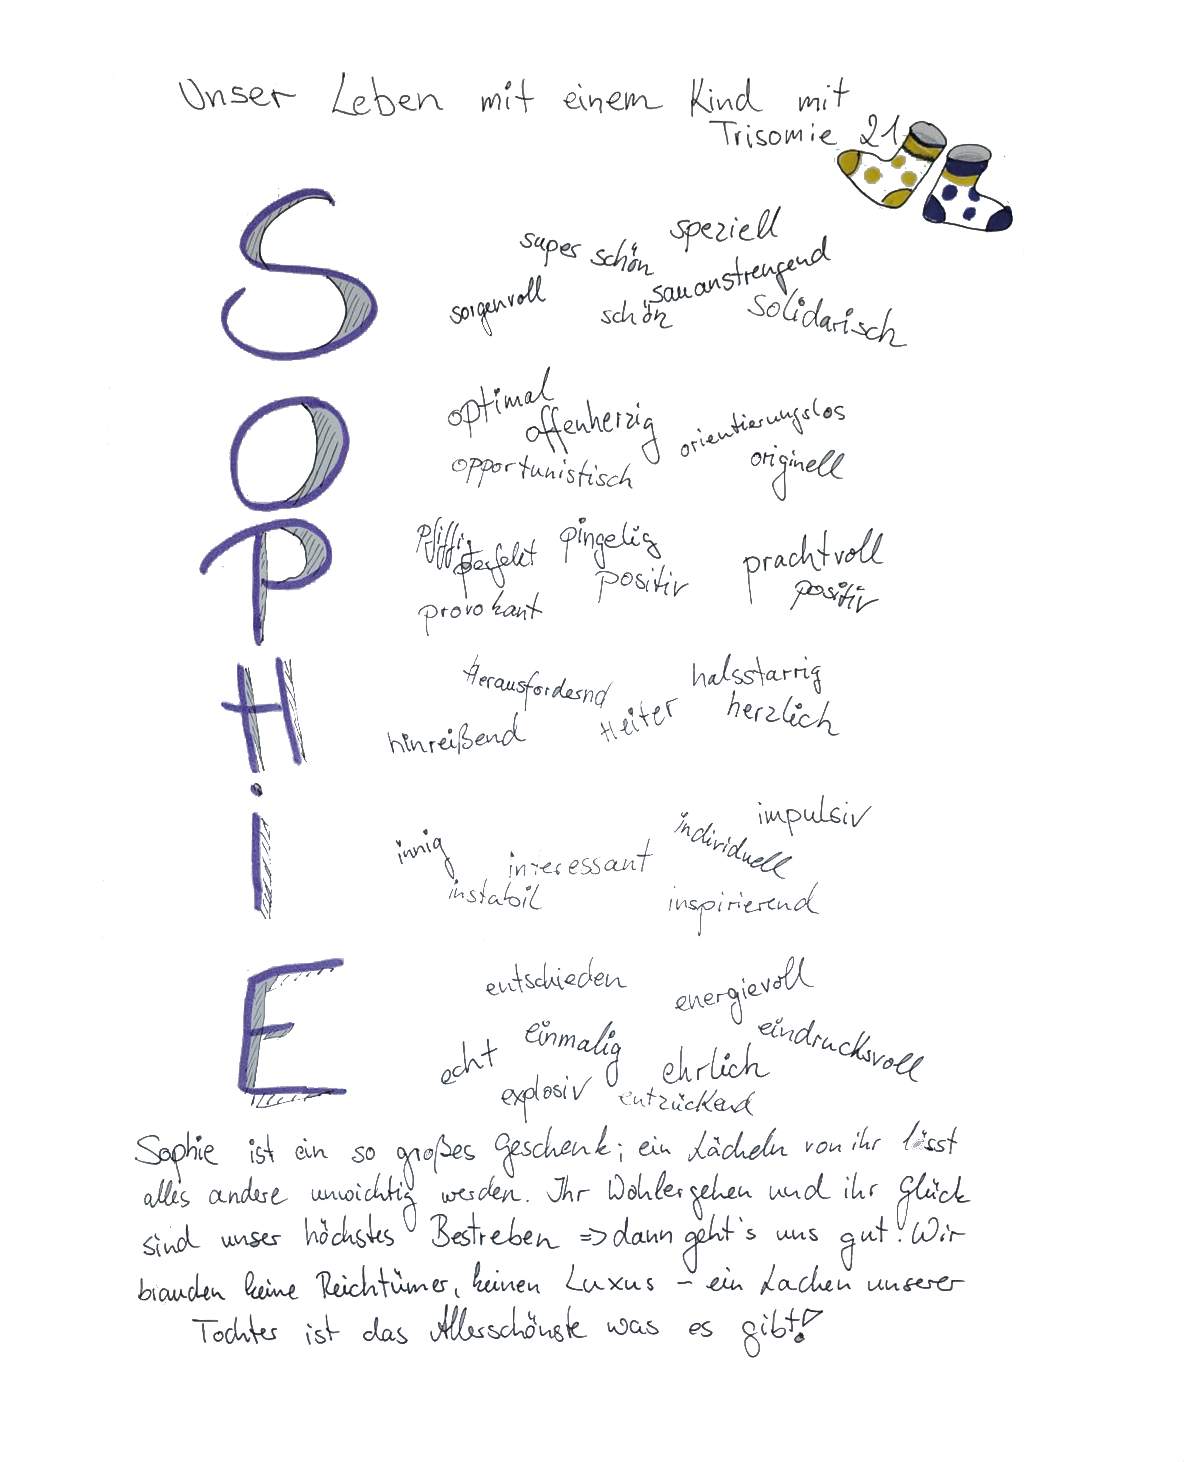 Unser Leben mit einem Kind mit
Trisomie 21
S
super schön speziell
sorgenvoll schön sauanstrengend
solidarisch
O
optimal offenherzig orientierungslos
opportunistisch originell
P
pfiffig perfekt pingelig prachtvoll
provokant positiv positiv
H
Herausfordernd halsstarrig
hinreißend Heiter herzlich
i
innig interessant individuell impulsiv
instabil inspirierend
E
entschieden energievoll
echt einmalig ehrlich eindrucksvoll
explosiv entzückend
Sophie ist ein so großes Geschenk; ein Lächeln von ihr lässt
alles andere unwichtig werden. Ihr Wohlergehen und ihr Glück
sind unser höchstes Bestreben => dann geht's uns gut! Wir
brauchen keine Reichtümer, keinen Luxus – ein Lachen unserer
Tochter ist das Allerschönste was es gibt!